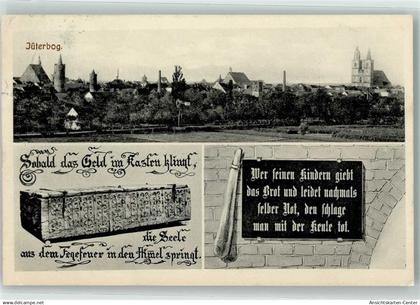 Jüterbog.
Sobald das Geld im Kasten klingt,
die Seele
aus dem Fegefeuer in den Himel springt.
Wer seinen Kindern giebt
das Brot und leidet nachmals
selber Not, den schlage
man mit der Keule tot.
www.ansichtskarten-center.de
Ansichtskarten-Center.de